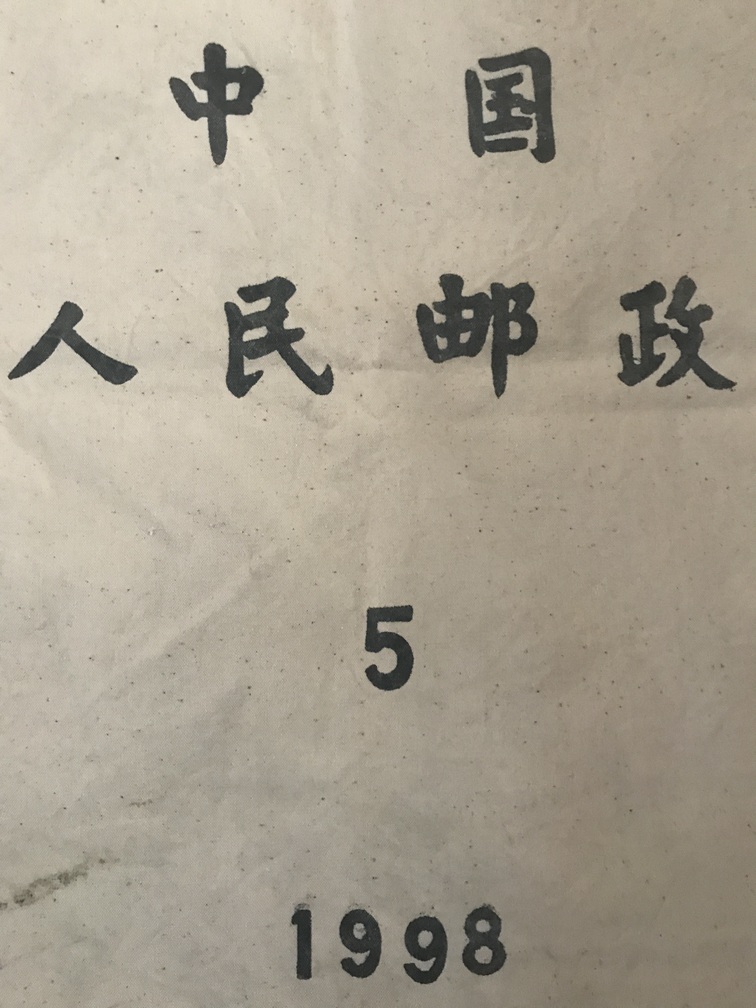 中国
人民邮政
5
1998